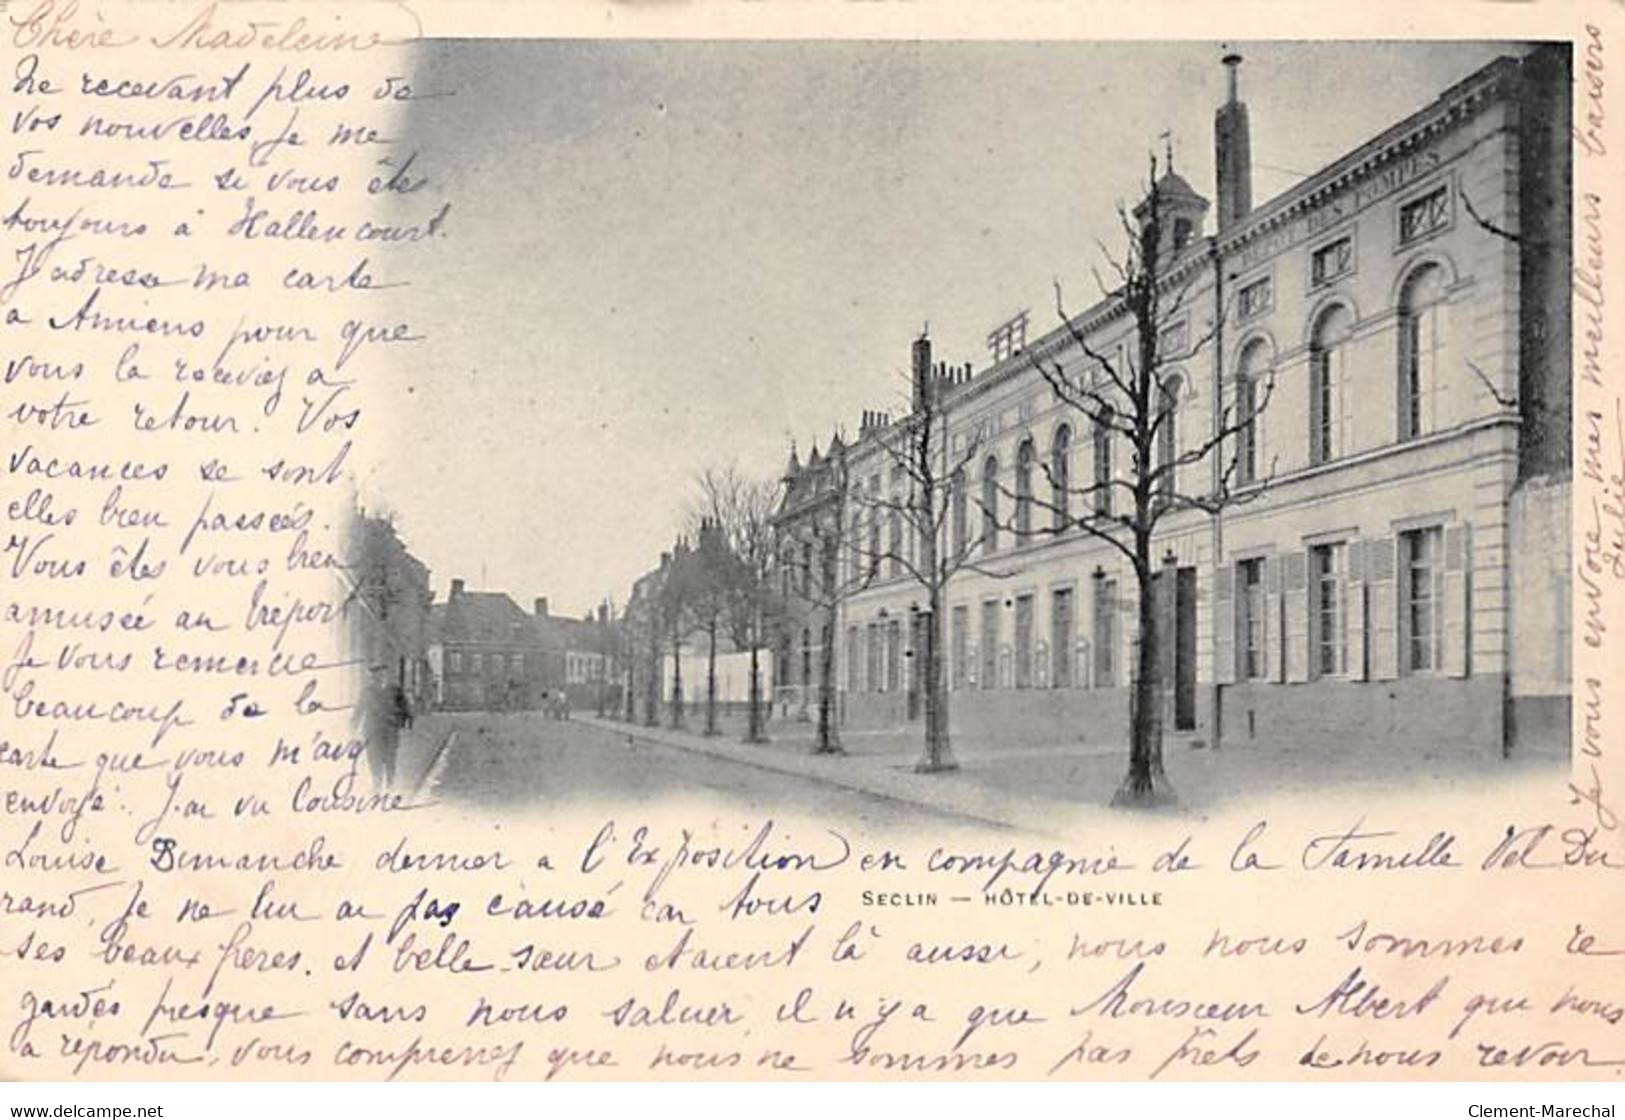 Chère Madeleine
Ne recevant plus de
vos nouvelles, je me
demande si vous êtes
toujours à Hallencourt.
J'adresse ma carte
a Amiens pour que
vous la receviez a
votre retour. Vos
vacances se sont
elles bien passées.
Vous êtes vous bien
amusée au Tréport
Je vous remercie
beaucoup de la
carte que vous m'avez
envoyé. J'ai vu Cousine
Louise Dimanche dernier a l'Exposition en compagnie de la Famille Vel Du
rand, Je ne lui ai pas causé car tous
ses beaux frères. et belle sœur etaient là aussi, nous nous sommes re
gardés presque sans nous saluer, il n'y a que Monsieur Albert qui nous
a répondu, vous comprenez que nous ne sommes pas prêts de nous revoir
Je vous envoie mes meilleurs baisers
DÉPÔT DES POMPES
HÔTEL DE VILLE
SECLIN — HÔTEL-DE-VILLE
www.delcampe.net
Clement-Marechal